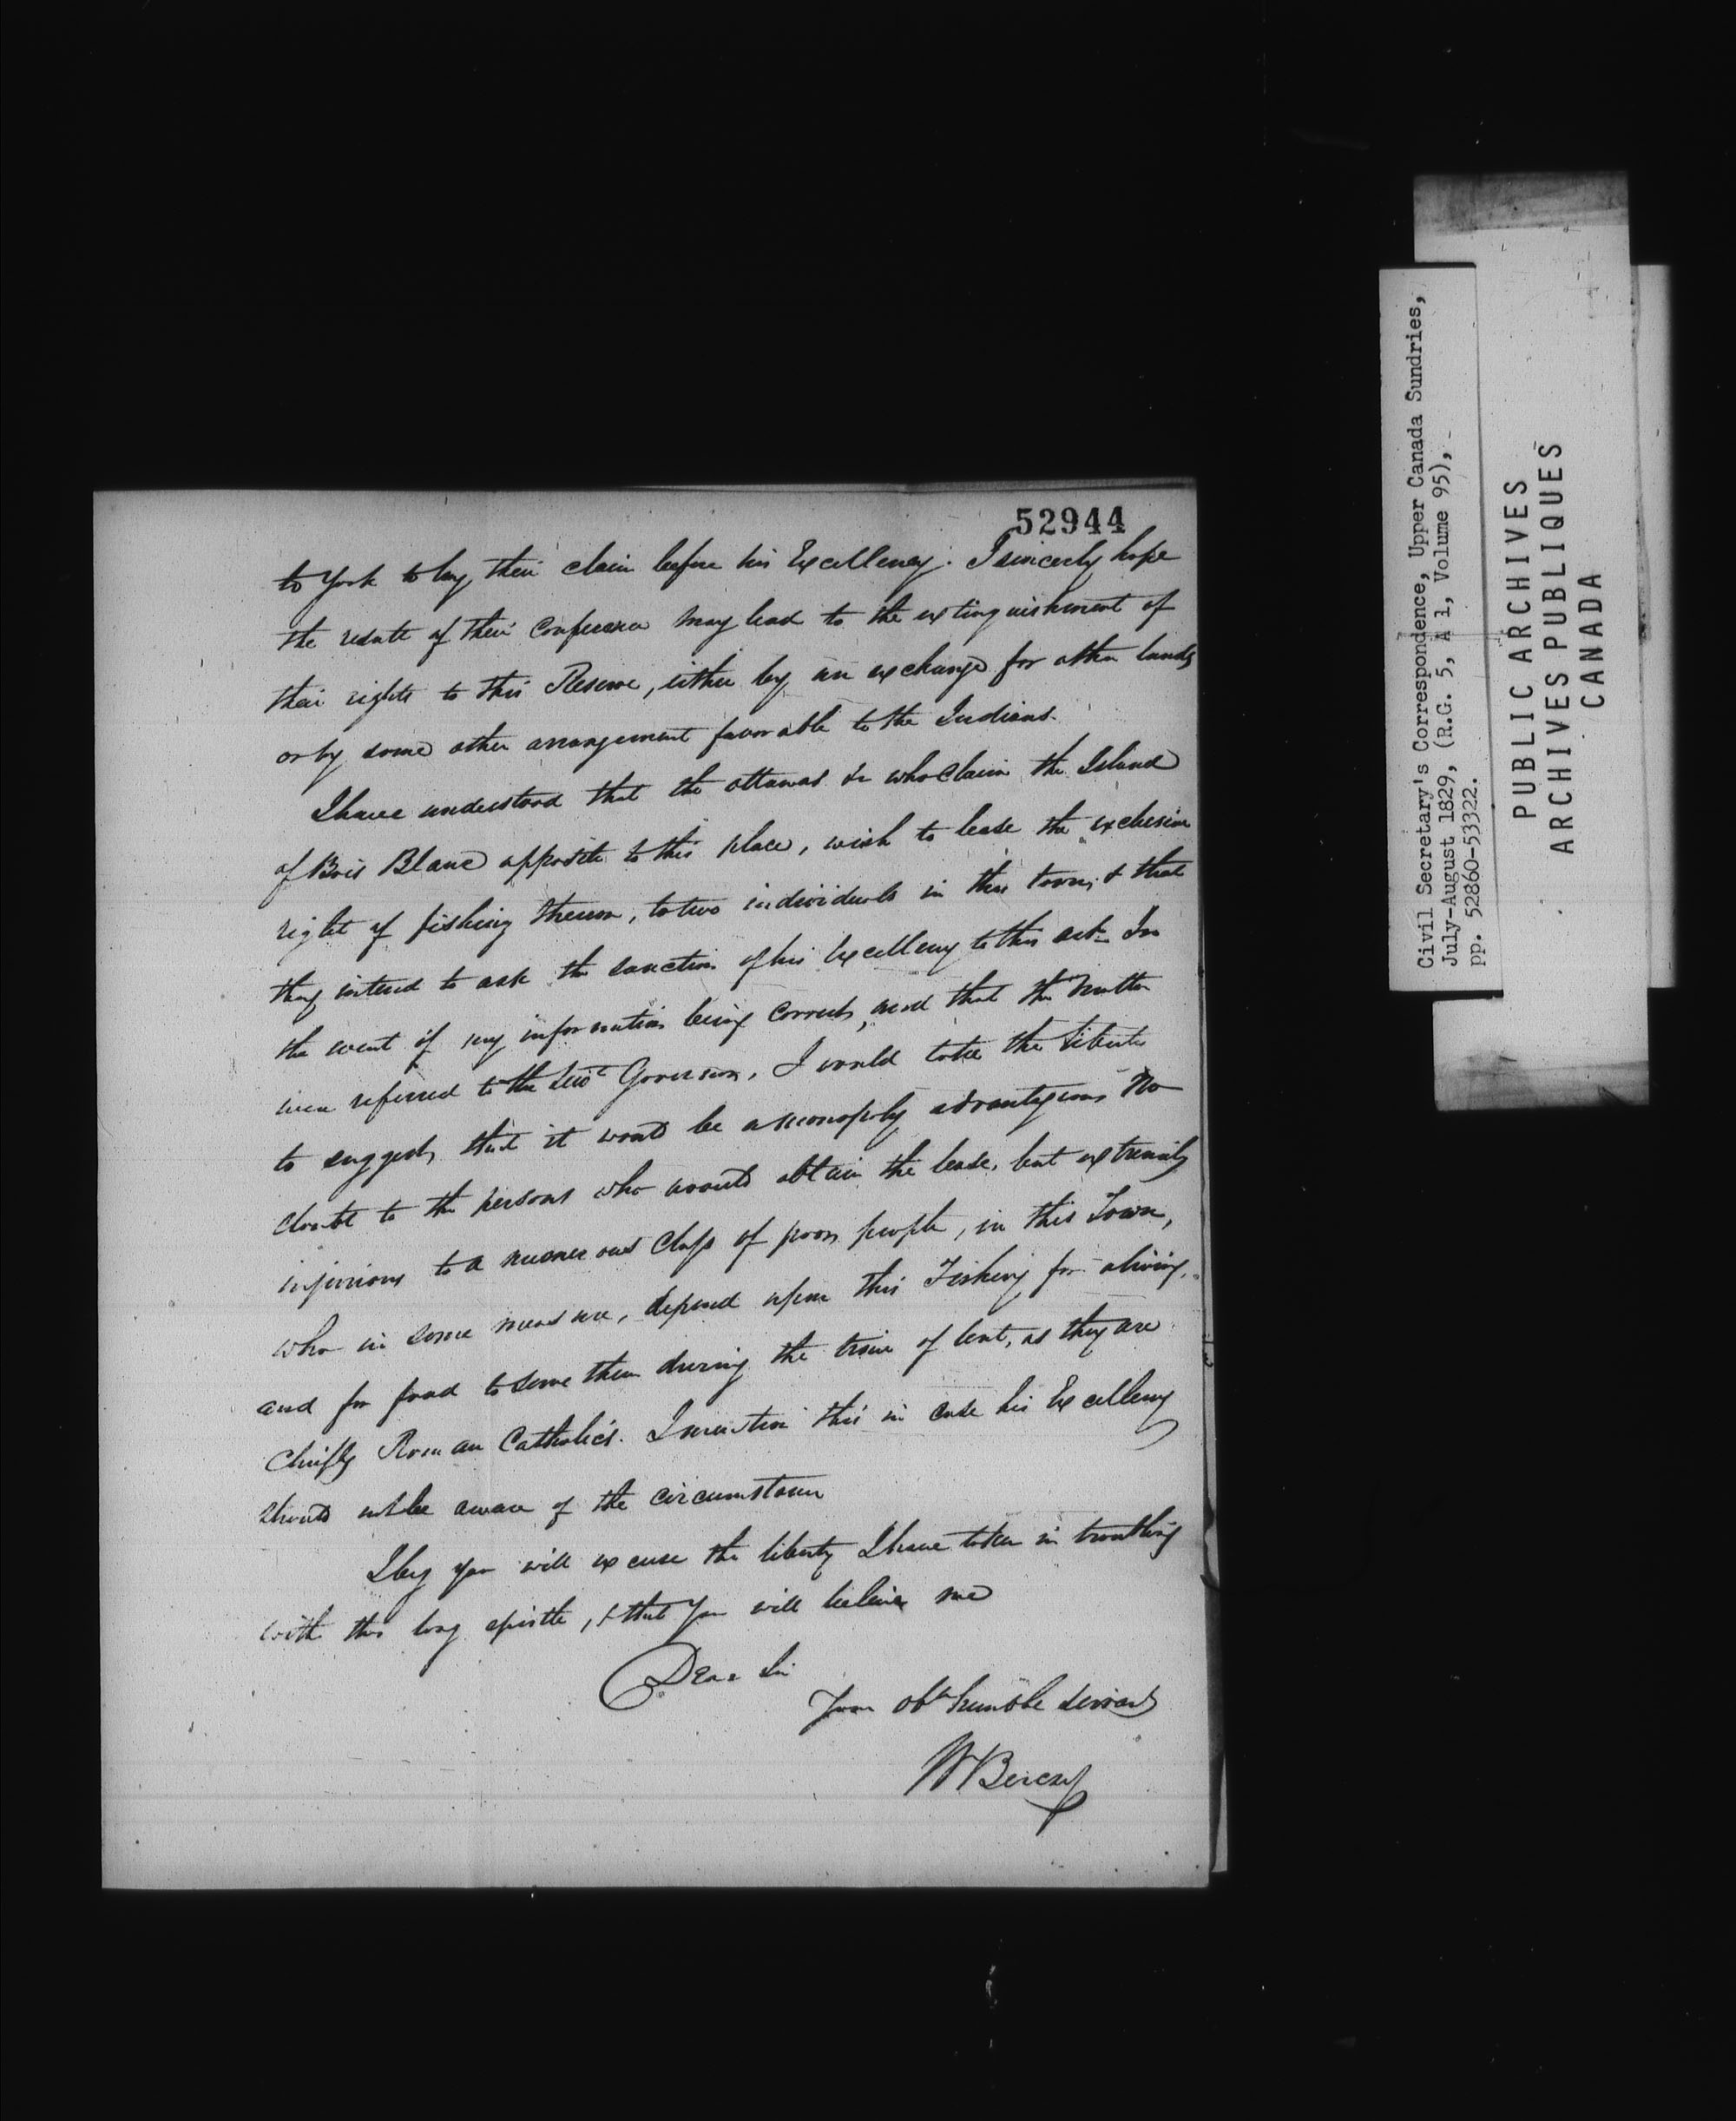 52944
to York to lay their claim before his Excellency. I sincerely hope
the result of their Conference may lead to the extinguishment of
their rights to this Reserve, either by an exchange for other lands
or by some other arrangement favorable to the Indians.
I have understood that the Ottawas &c who claim the Island
of Bois Blanc opposite to this place, wish to lease the exclusive
right of fishing thereon, to two individuals in this town, & that
they intend to ask the sanction of his Excellency to this act. In
the event of my information being correct, and that the matter
were referred to the Lieut Governor, I would take the liberty
to suggest, that it would be a monopoly advantageous no
doubt to the persons who would obtain the lease, but extremely
injurious to a numerous class of poor people, in this Town,
who in some measure, depend upon this Fishery for a living,
and for food to serve them during the time of lent, as they are
chiefly Roman Catholics. I mention this in case his Excellency
should not be aware of the circumstance
I beg you will excuse the liberty I have taken in troubling
with this long epistle, & that you will believe me
Dear Sir
Your obt humble servant
W Berczy
Civil Secretary's Correspondence, Upper Canada Sundries,
July-August 1829, (R.G. 5, A 1, Volume 95),
pp. 52860-53322.
PUBLIC ARCHIVES
ARCHIVES PUBLIQUES
CANADA